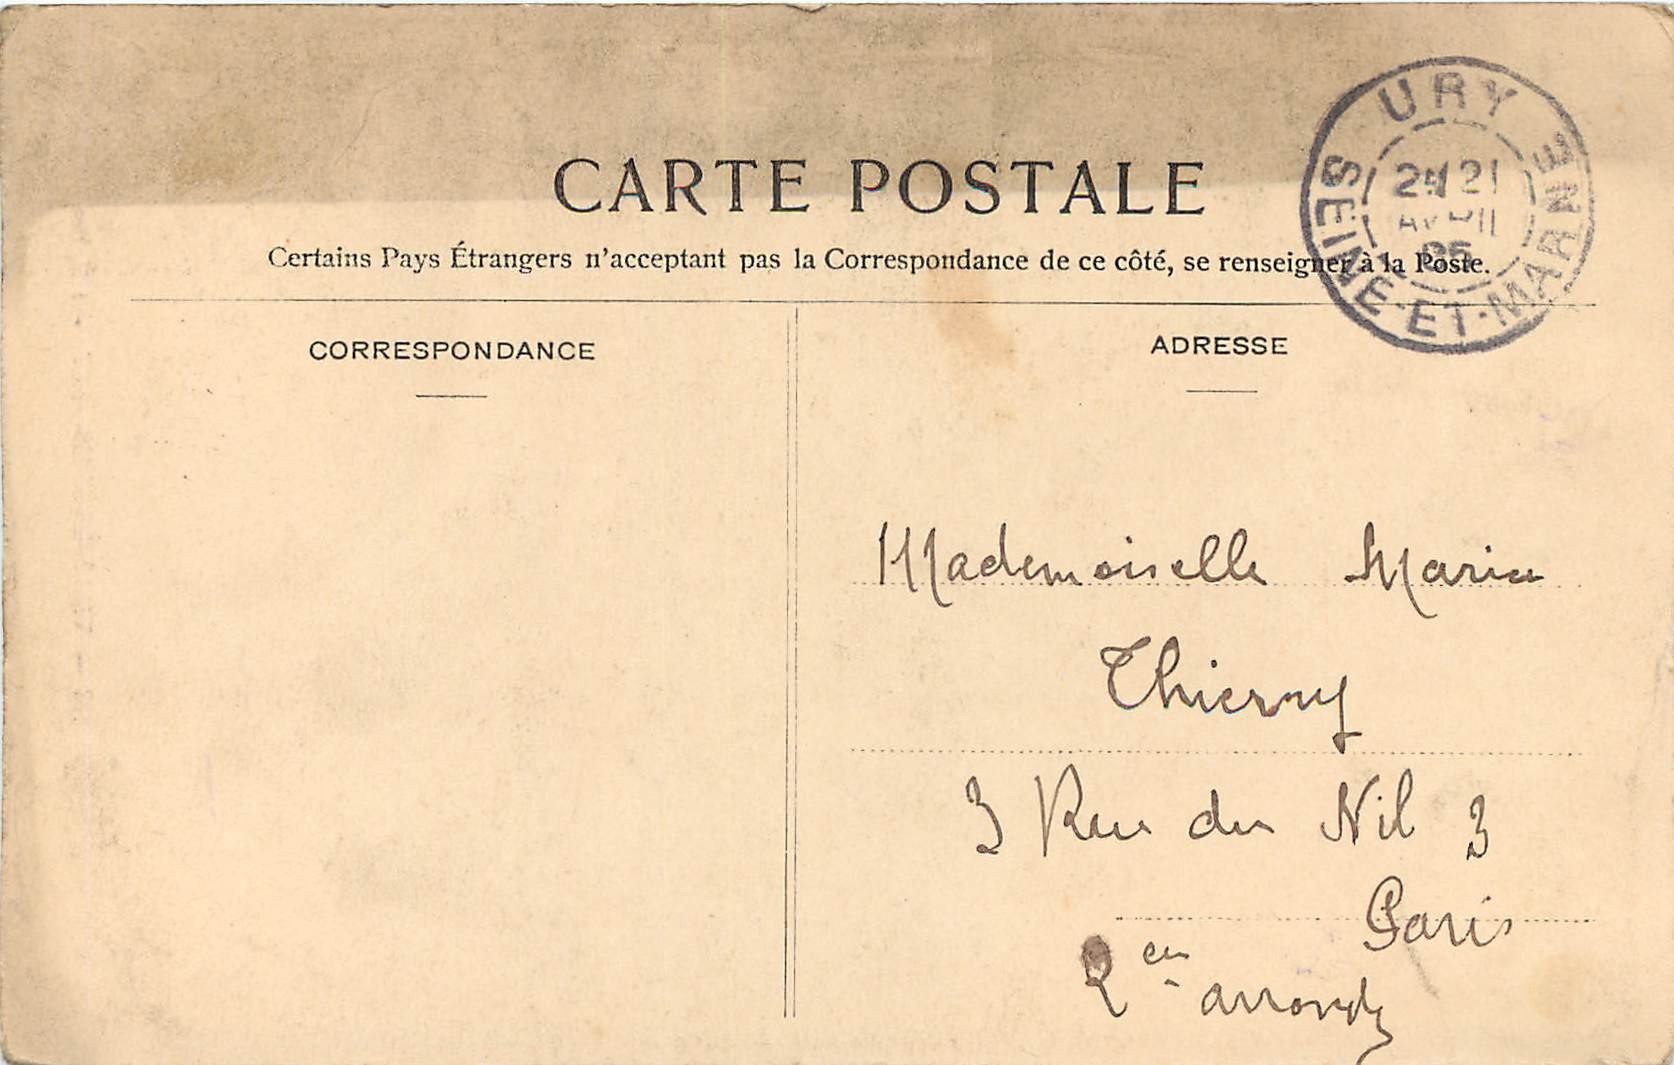 CARTE POSTALE
Certains Pays Étrangers n'acceptant pas la Correspondance de ce côté, se renseigner à la Poste.
URY
SEINE-ET-MARNE
21
AVRIL
05
CORRESPONDANCE
ADRESSE
Mademoiselle Marie
Thierry
3 Rue du Nil 3
Paris
2em arrondt